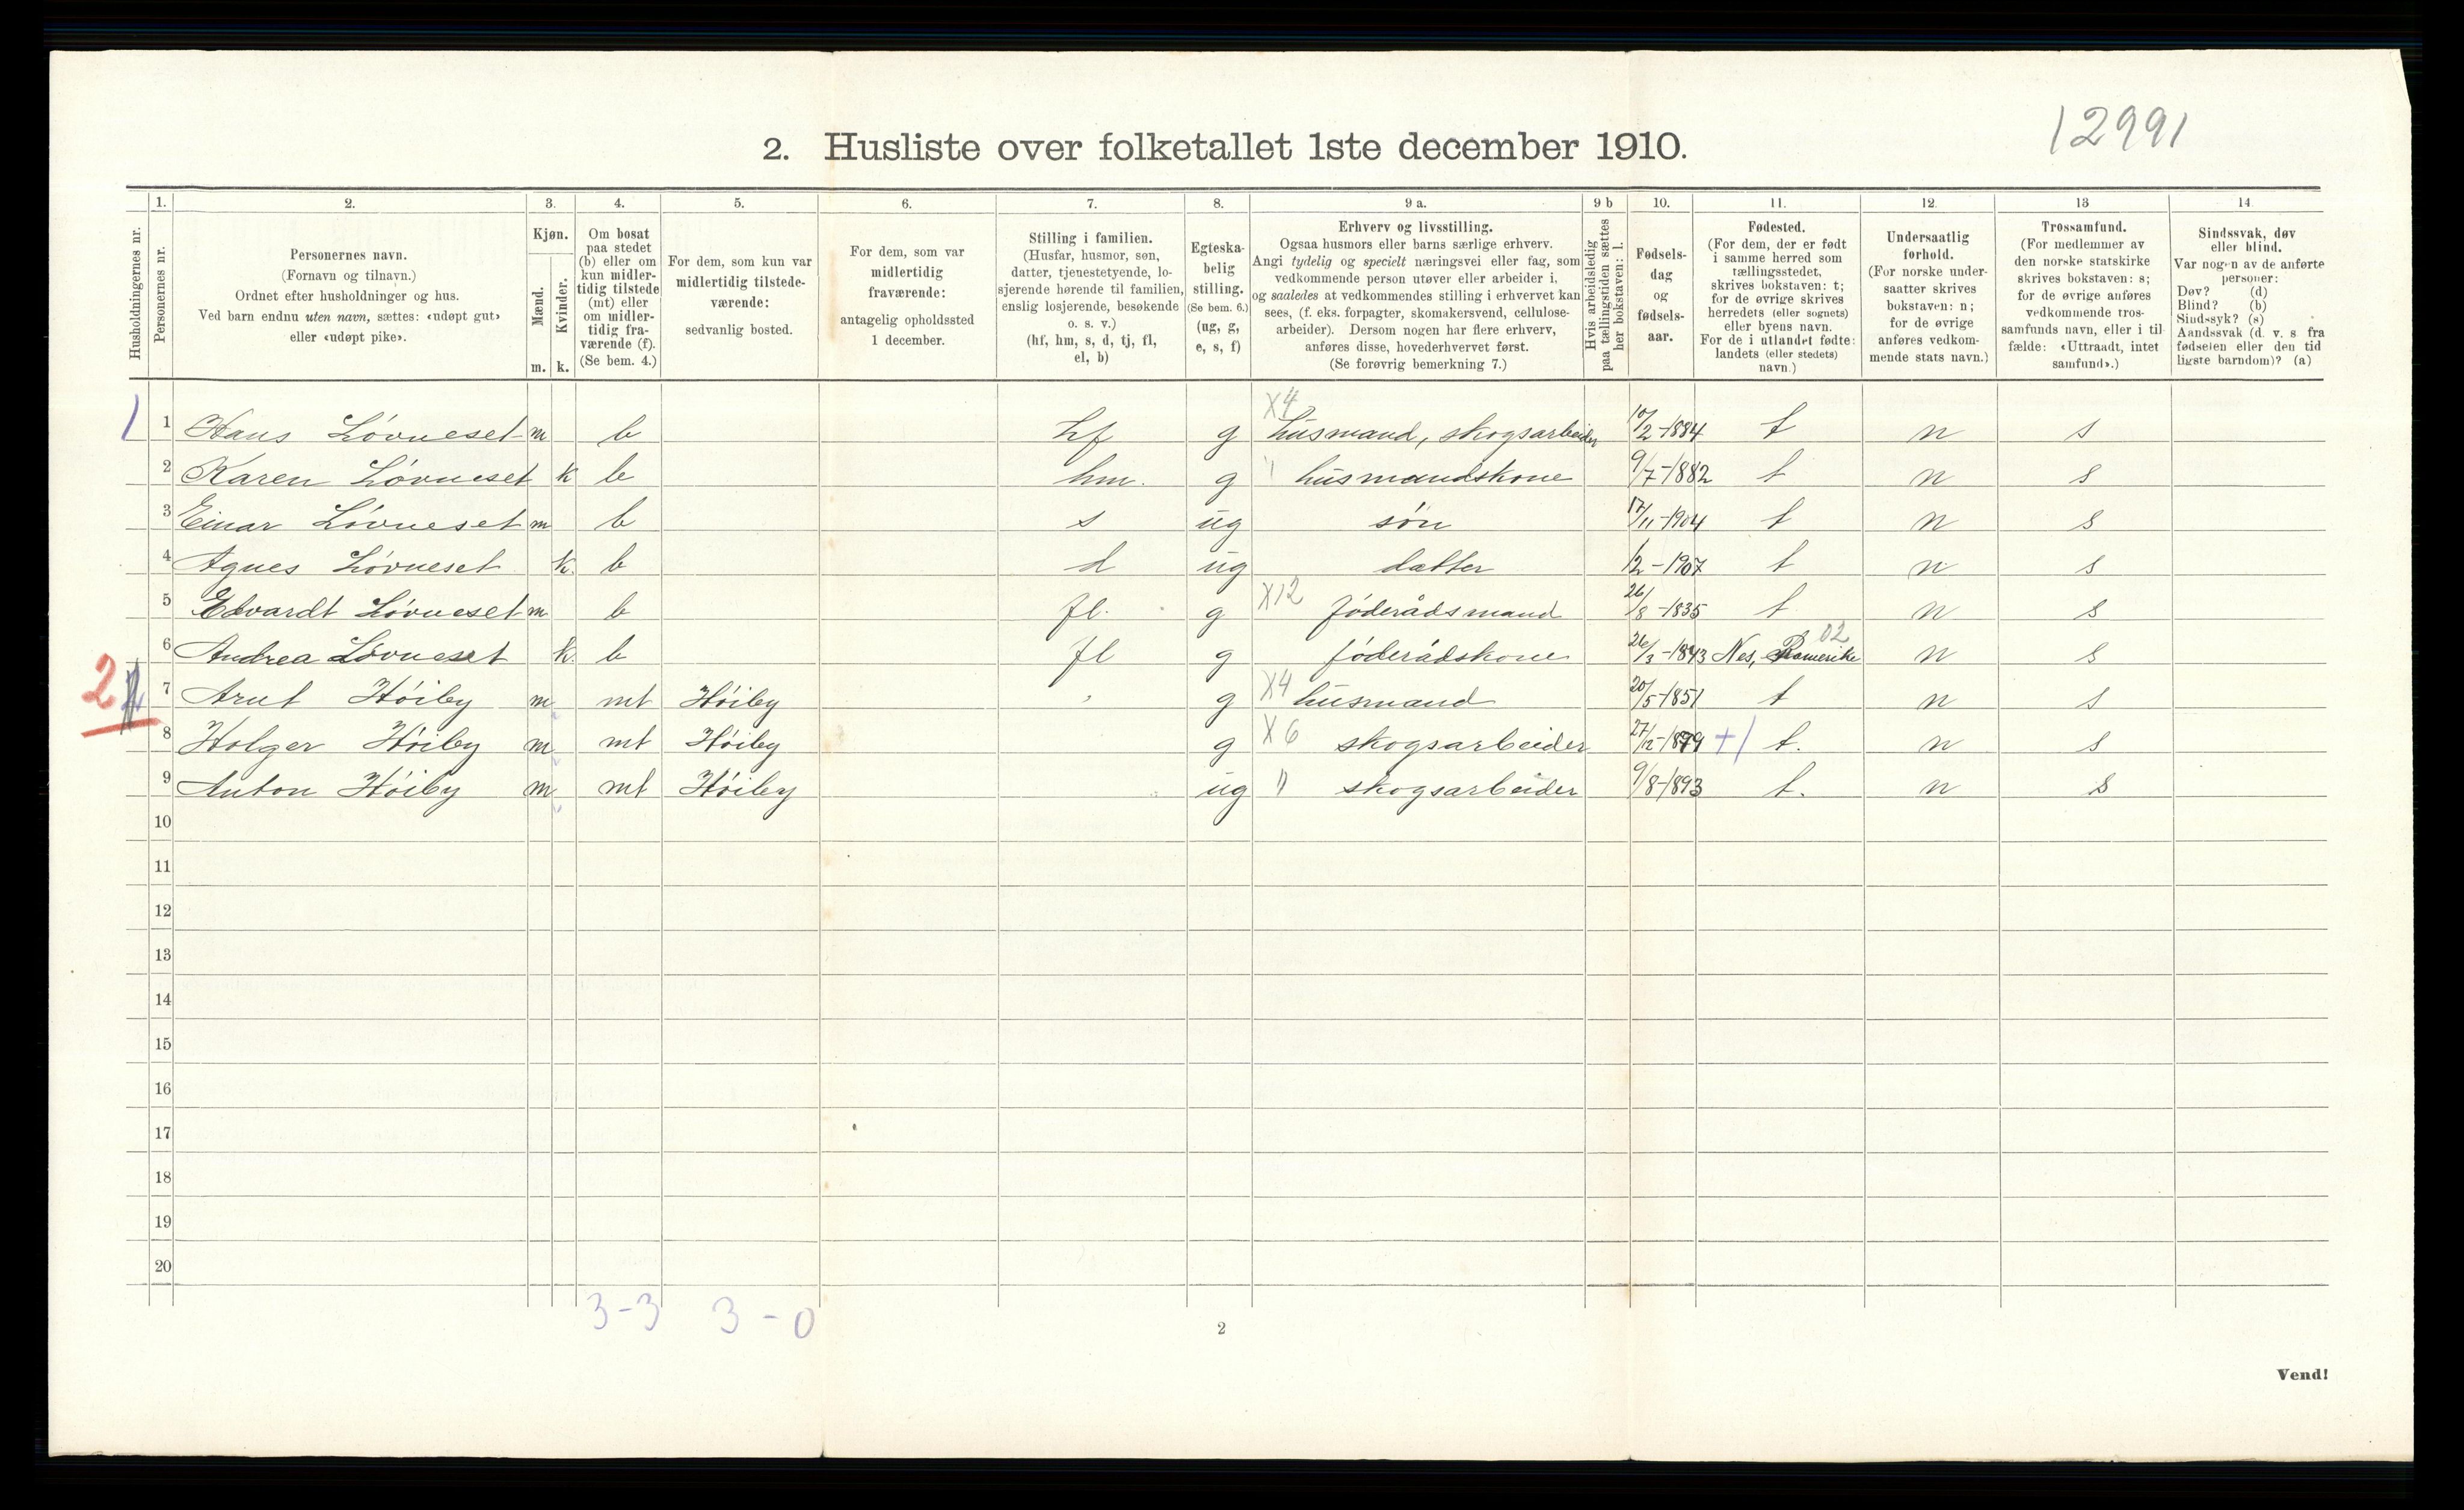 12991
2. Husliste over folketallet 1ste december 1910.
Husholdningernes nr.
1.
Personernes nr.
2.
Personernes navn.
(Fornavn og tilnavn.)
Ordnet efter husholdninger og hus.
Ved barn endnu uten navn, sættes: «udøpt gut»
eller «udøpt pike».
3.
Kjøn.
Mænd.
Kvinder.
m. k.
4.
Om bosat
paa stedet
(b) eller om
kun midler-
tidig tilstede
(mt) eller
om midler-
tidig fra-
værende (f).
(Se bem. 4.)
5.
For dem, som kun var
midlertidig tilstede-
værende:
sedvanlig bosted.
6.
For dem, som var
midlertidig
fraværende:
antagelig opholdssted
1 december.
7.
Stilling i familien.
(Husfar, husmor, søn,
datter, tjenestetyende, lo-
sjerende hørende til familien,
enslig losjerende, besøkende
o. s. v.)
(hf, hm, s, d, tj, fl,
el, b)
8.
Egteska-
belig
stilling.
(Se bem. 6.)
(ug, g,
e, s, f)
9 a.
Erhverv og livsstilling.
Ogsaa husmors eller barns særlige erhverv.
Angi tydelig og specielt næringsvei eller fag, som
vedkommende person utøver eller arbeider i,
og saaledes at vedkommendes stilling i erhvervet kan
sees, (f. eks. forpagter, skomakersvend, cellulose-
arbeider). Dersom nogen har flere erhverv,
anføres disse, hovederhvervet først.
(Se forøvrig bemerkning 7.)
9 b
Hvis arbeidsledig
paa tællingstiden sættes
her bokstaven: l.
10.
Fødsels-
dag
og
fødsels-
aar.
11.
Fødested.
(For dem, der er født
i samme herred som
tællingsstedet,
skrives bokstaven: t;
for de øvrige skrives
herredets (eller sognets)
eller byens navn.
For de i utlandet fødte:
landets (eller stedets)
navn.)
12.
Undersaatlig
forhold.
(For norske under-
saatter skrives
bokstaven: n;
for de øvrige
anføres vedkom-
mende stats navn.)
13
Trossamfund.
(For medlemmer av
den norske statskirke
skrives bokstaven: s;
for de øvrige anføres
vedkommende tros-
samfunds navn, eller i til
fælde: «Uttraadt, intet
samfund».)
14
Sindssvak, døv
eller blind.
Var nogen av de anførte
personer:
Døv? (d)
Blind? (b)
Sindssyk? (s)
Aandssvak (d. v. s fra
fødselen eller den tid
ligste barndom)? (a)
1 1 Hans Lövneset m b hf g X4 husmand, skogsarbeider 10/2-1884 t n s
2 Karen Lövneset k b hm. g " husmandskone 9/7-1882 t n s
3 Einar Lövneset m b s ug sön 17/11-1904 t n s
4 Agnes Lövneset k. b d ug datter 1/2-1907 t n s
5 Edvardt Lövneset m b fl. g X12 föderådsmand 26/8-1835 t n s
6 Andrea Lövneset k. b fl g föderådskone 26/3-1843 Nes, Romerike 02 n s
2 7 Arnt Höiby m mt Höiby g X4 husmand 20/5-1851 t n s
8 Holger Höiby m mt Höiby g X6 skogsarbeider 27/12-1879 +1 t. n s
9 Anton Höiby m mt Höiby ug " skogsarbeider 9/8-1893 t. n s
10
11
12
13
14
15
16
17
18
19
20
3-3 3-0
2
Vend!